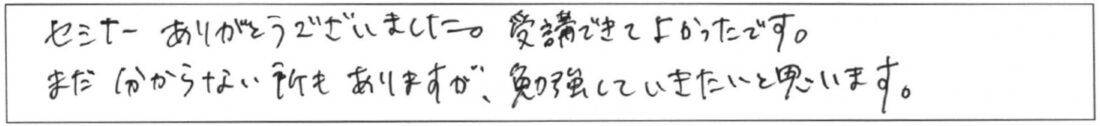 セミナーありがとうございました。受講できてよかったです。
まだ分からない所もありますが、勉強していきたいと思います。